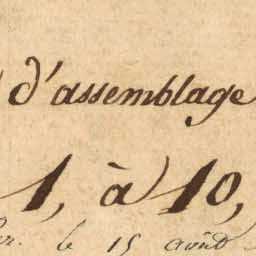 d'assemblage
1, à 10,
le 15 août